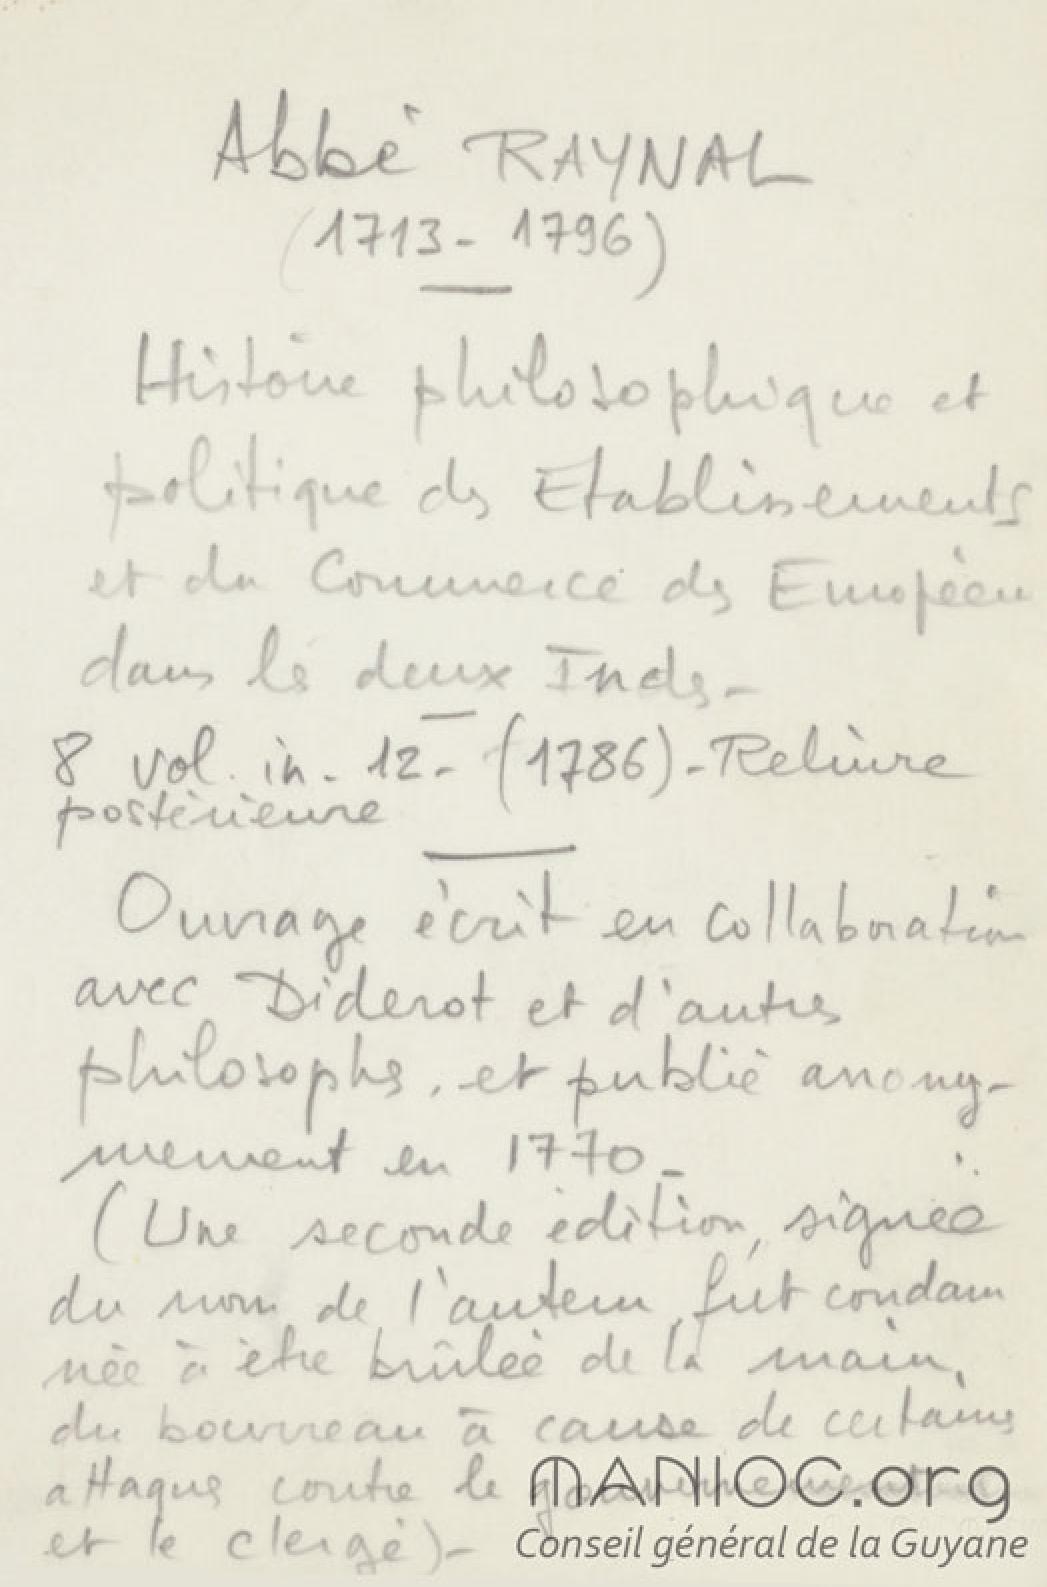 Abbé RAYNAL
(1713 - 1796)
Histoire philosophique et
politique des Etablissements
et du Commerce des Européens
dans les deux Indes -
8 vol. in - 12 - (1786) - Reliure
postérieure
Ouvrage écrit en collaboration
avec Diderot et d'autres
philosophes, et publié anony-
mement en 1770 -
(Une seconde édition, signée
du nom de l'auteur, fut condam
née à être brûlée de la main
du bourreau à cause de certaines
attaques contre le gouvernement
et le clergé) -
MANIOC.org
Conseil général de la Guyane